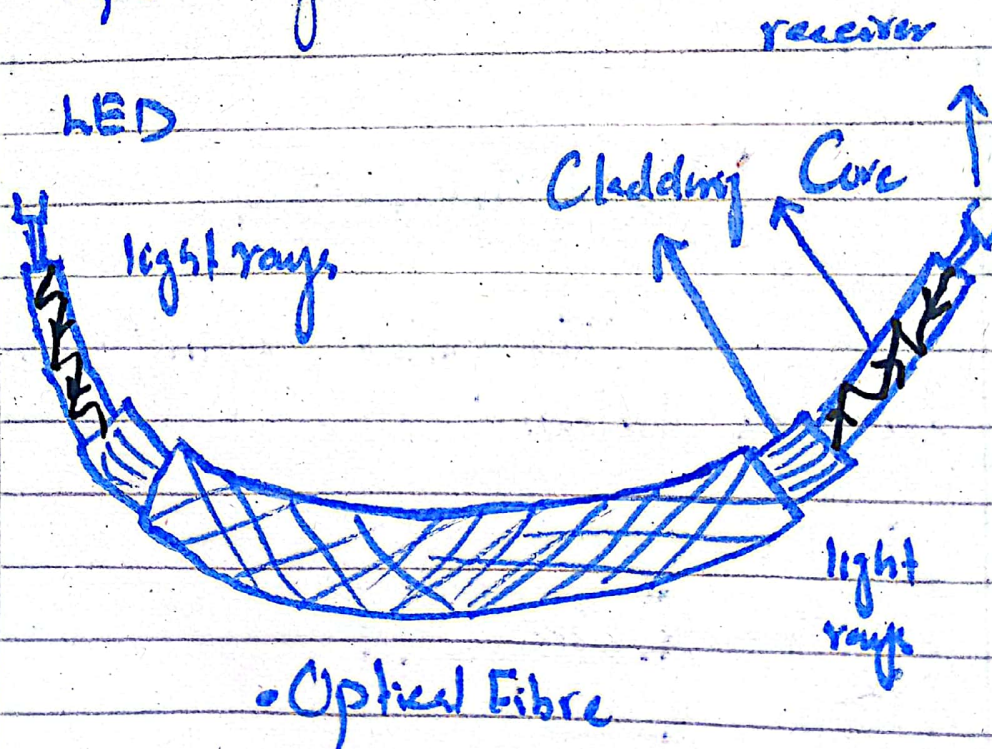 receiver
LED
Cladding Core
light rays
light
rays
• Optical Fibre